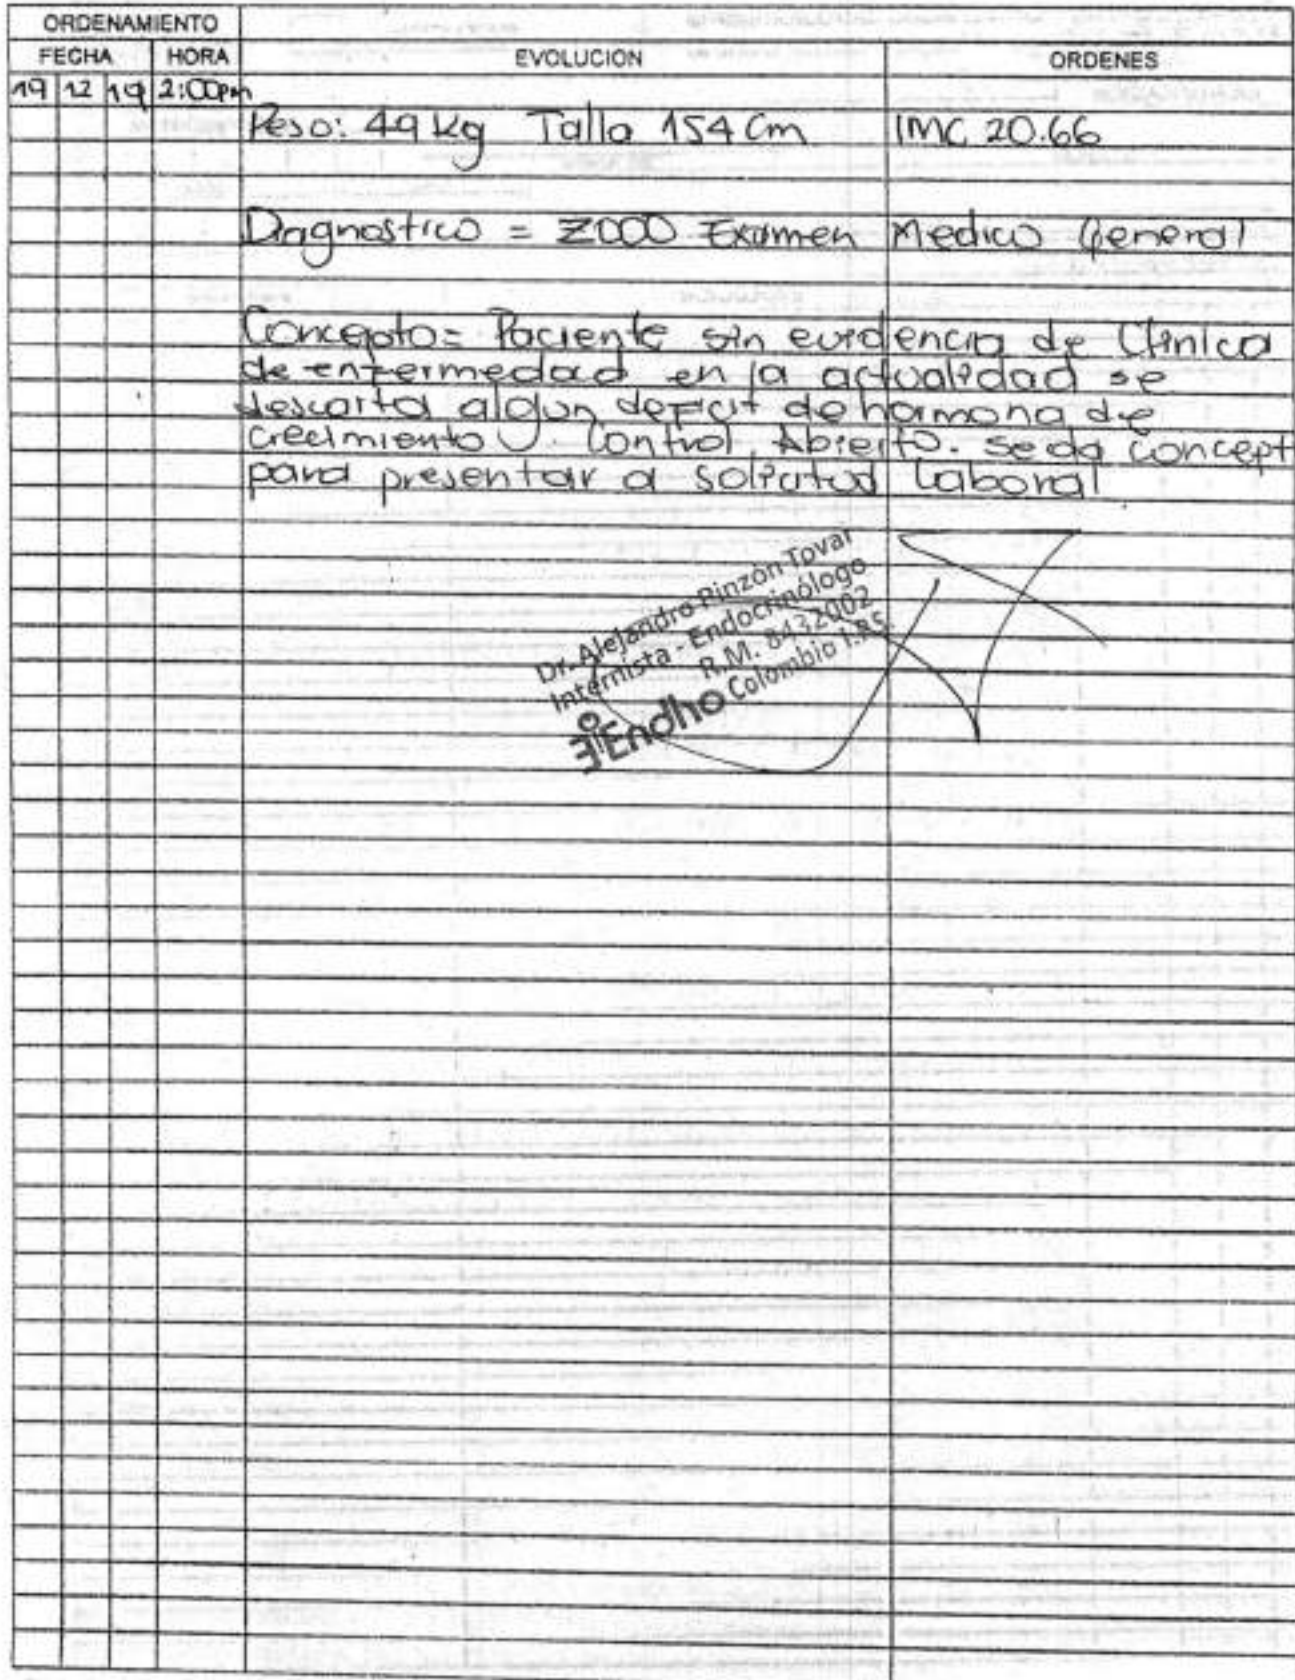 ORDENAMIENTO
FECHA HORA EVOLUCION ORDENES
19 12 19 2:00pm
Peso: 49 kg Talla 154 Cm IMC 20.66
Diagnostico = Z000 Examen Medico General
Concepto= Paciente sin evidencia de Clinica
de enfermedad en la actualidad se
descarta algun deficit de hormona de
crecimiento. Control Abierto. se da concept
para presentar a solicitud laboral
Dr. Alejandro Pinzón Tovar
Internista - Endocrinólogo
R.M. 8432002
Endho Colombia I.P.S.